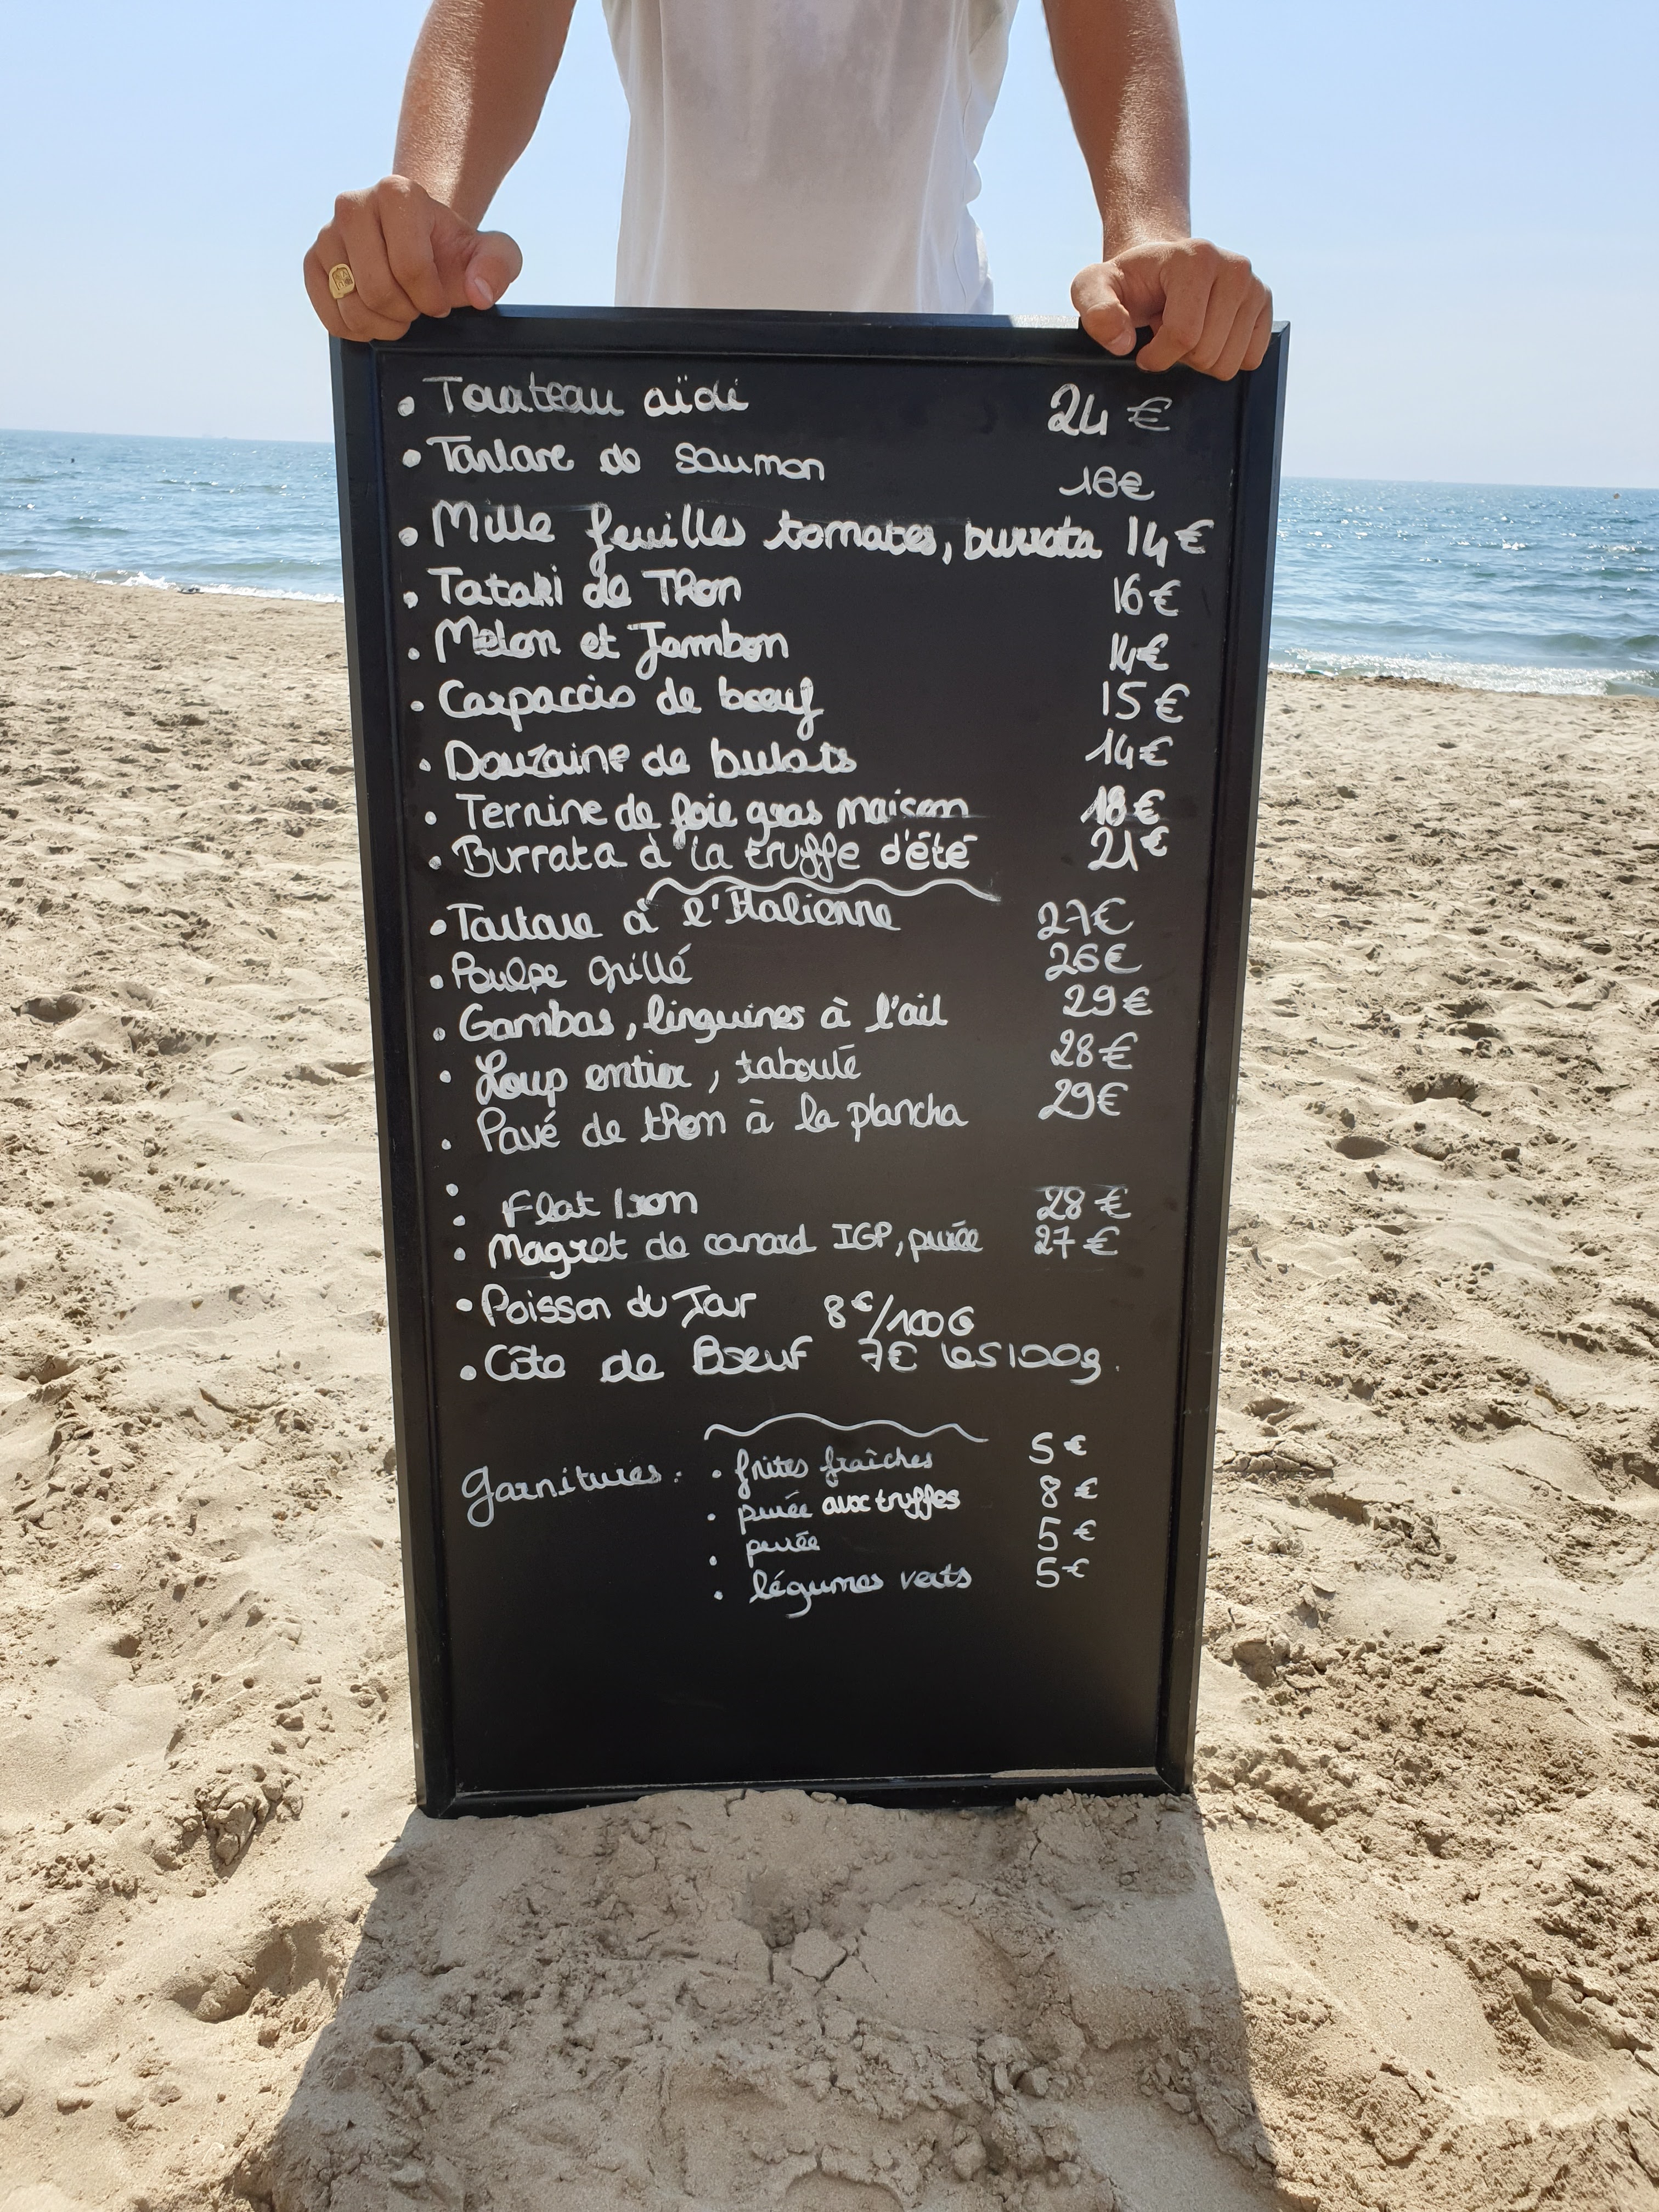 • Tourteau aïoli 24 €
• Tartare de saumon 18€
• Mille feuilles tomates, burrata 14€
• Tataki de Thon 16€
• Melon et Jambon 14€
• Carpaccio de bœuf 15€
• Douzaine de bulots 14€
• Terrine de foie gras maison 18€
• Burrata à la truffe d'été 21€
• Tartare à l'Italienne 27€
• Poulpe Grillé 26€
• Gambas, linguines à l'ail 29€
• Loup entier, taboulé 28€
• Pavé de thon à la plancha 29€
• Flat Iron 28€
• Magret de canard IGP, purée 27€
• Poisson du Jour 8€/100G
• Côte de Bœuf 7€ les 100g.
Garnitures : • frites fraîches 5€
• purée aux truffes 8€
• purée 5€
• légumes verts 5€